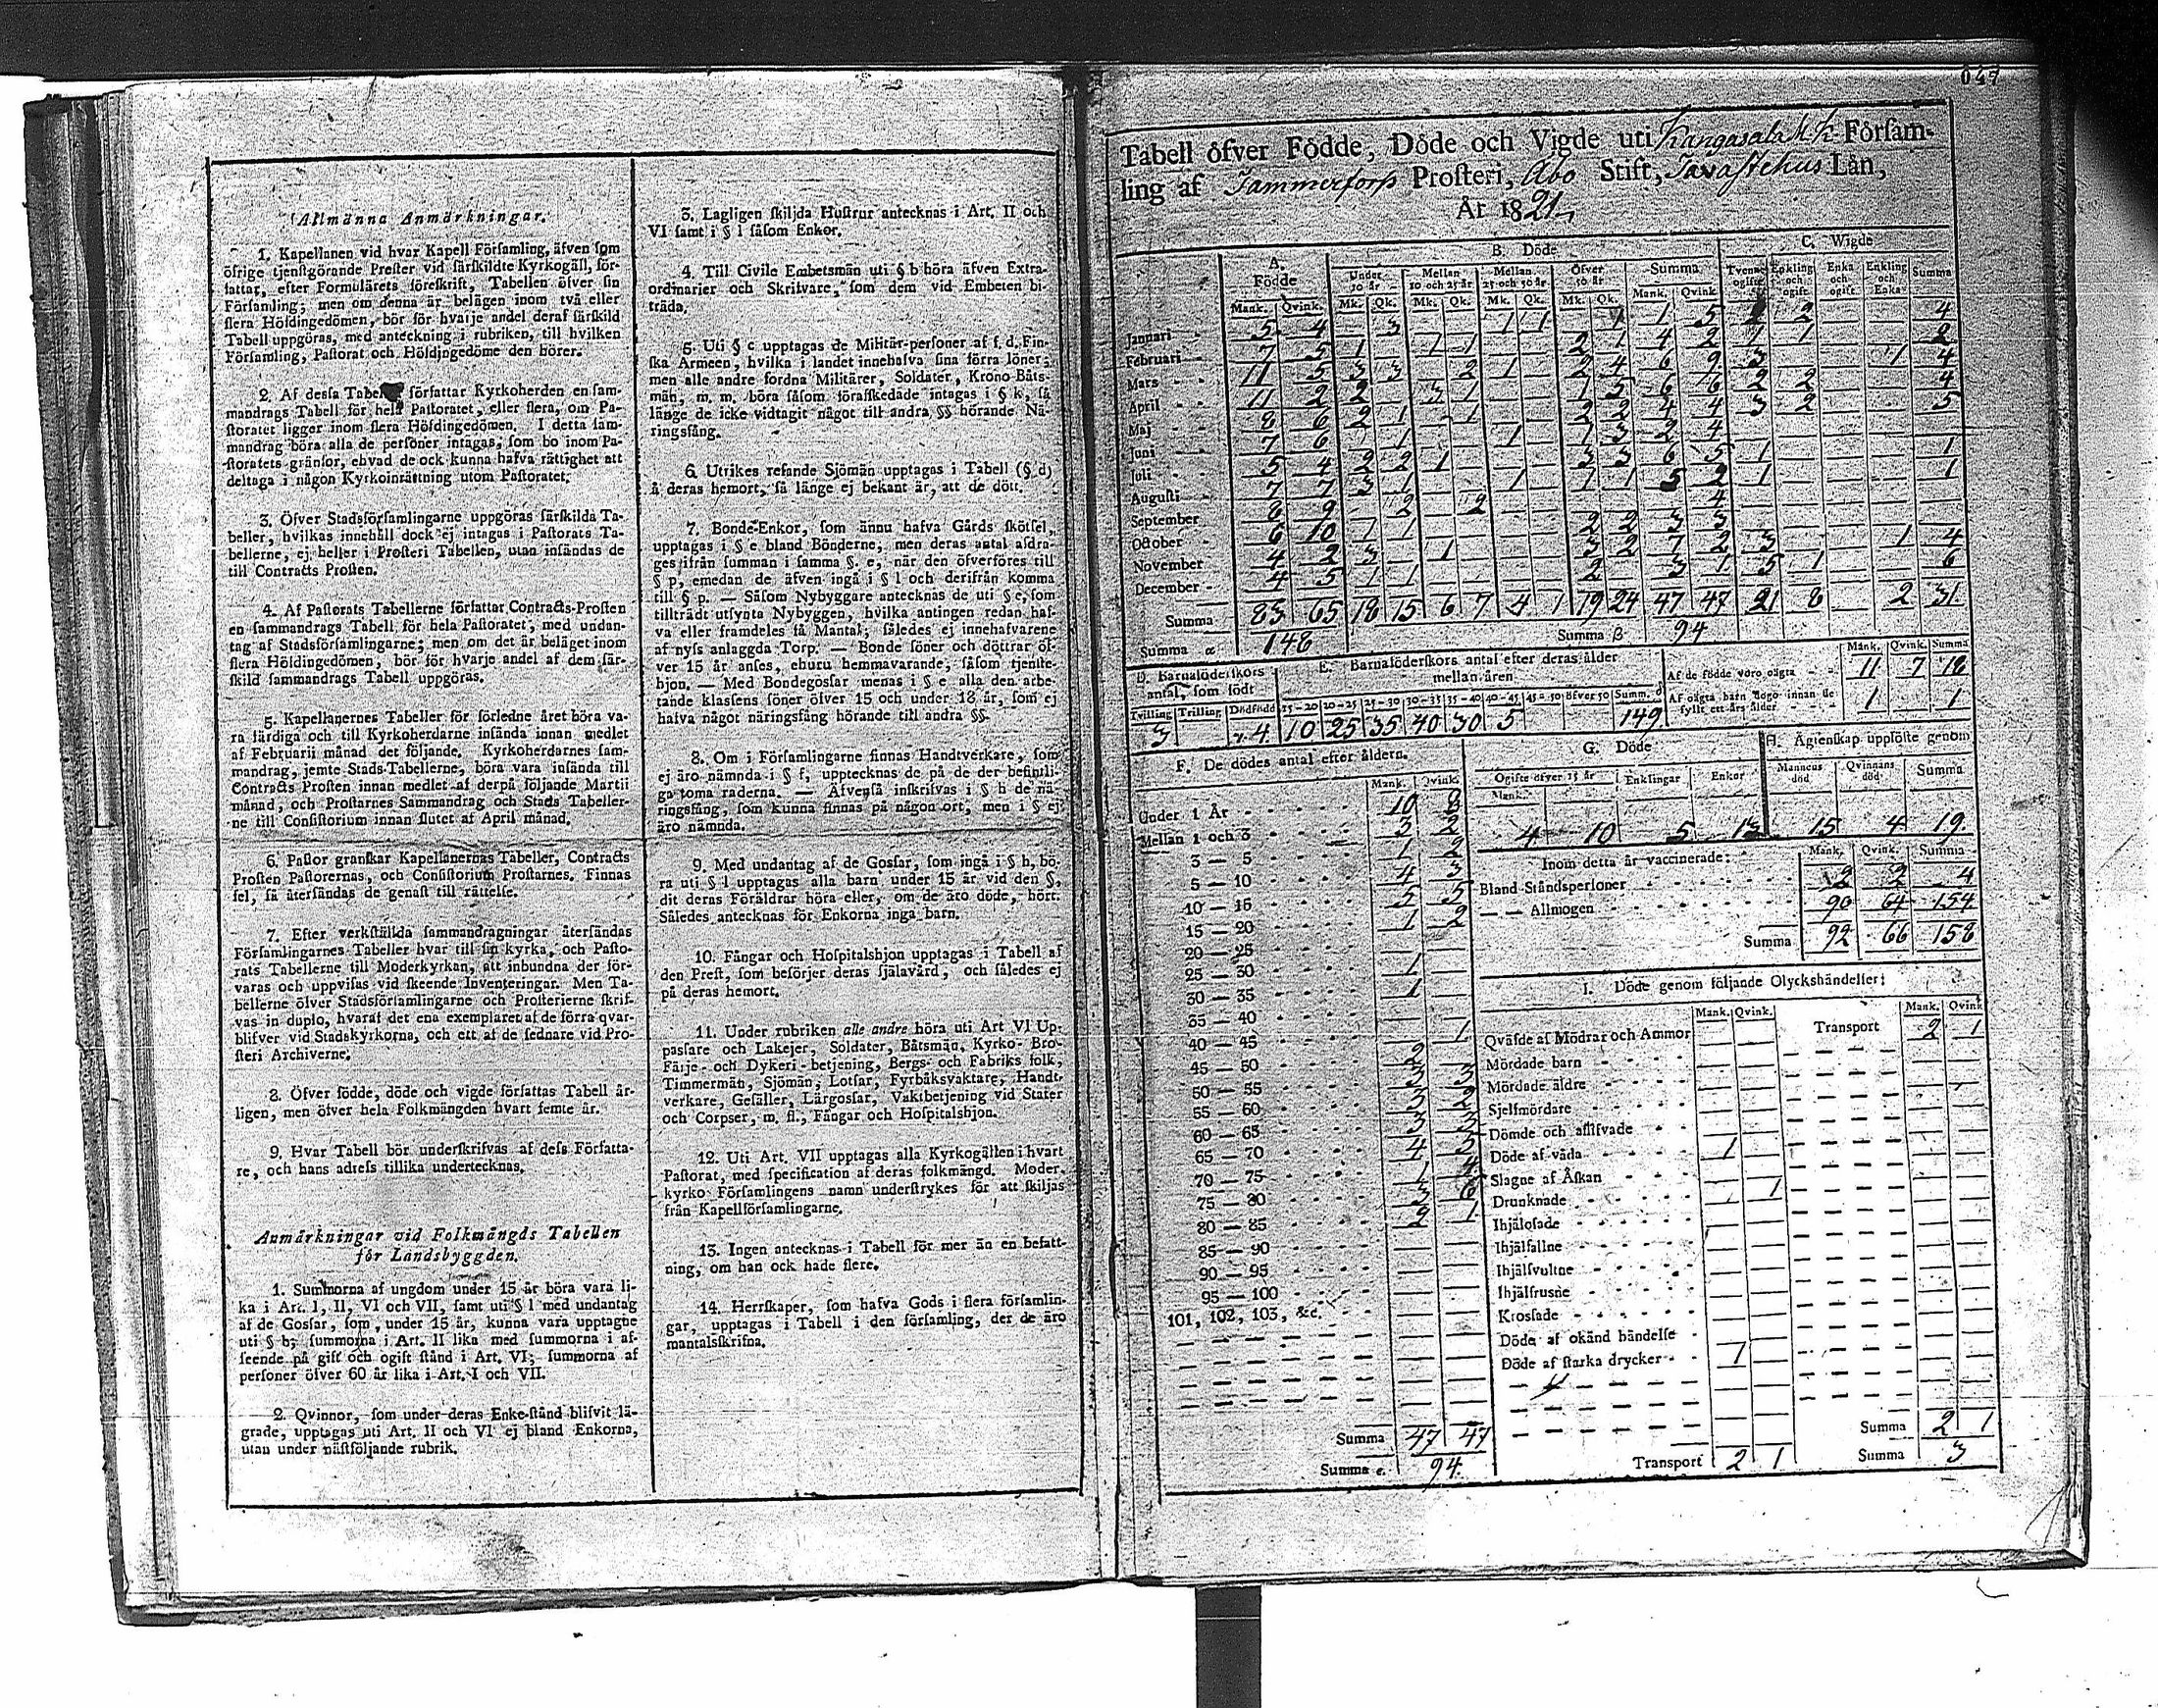 Allmänna Anmärkningar.
1. Kapellanen vid hvar Kapell Församling, äfven som
öfrige tjenstgörande Prester vid särskildte Kyrkogäll, för-
fattar, efter Formulärets föreskrift, Tabellen öfver sin
Församling; men om denna är belägen inom två eller
flera Höfdingedömen, bör för hvarje andel deraf särskild
Tabell uppgöras, med anteckning i rubriken, till hvilken
Församling, Pastorat och Höfdingedöme den hörer.
2. Af dessa författar Kyrkoherden en sam-
mandrags Tabell för hela Pastoratet, eller flera, om Pa-
storatet ligger inom flera Höfdingedömen. I detta sam-
mandrag böra alla de personer intagas, som bo inom Pa-
storatets gränsor, ehvad de ock kunna hafva rättighet att
deltaga i någon Kyrkoinrättning utom Pastoratet.
3. Öfver Stadsförsamlingarne uppgöras särskilda Ta-
beller, hvilkas innehåll dock ej intagas i Pastorats Ta-
bellerne, ej heller i Prosteri Tabellen, utan insändas de
till Contracts Prosten.
4. Af Pastorats Tabellerne författar Contracts-Prosten
en sammandrags Tabell för hela Pastoratet, med undan-
tag af Stadsförsamlingarne; men om det är beläget inom
flera Höfdingedömen, bör för hvarje andel af dem sär-
skild sammandrags Tabell uppgöras.
5. Kapellanernes Tabeller för förledne året böra va-
ra färdiga och till Kyrkoherdarne insända innan medlet
af Februarii månad det följande. Kyrkoherdarnes sam-
mandrag, jemte Stads-Tabellerne, böra vara insända till
Contracts Prosten innan medlet af derpå följande Martii
månad, och Prostarnes Sammandrag och Stads Tabeller-
ne till Consistorium innan slutet af April månad.
6. Pastor granskar Kapellanernas Tabeller, Contracts
Prosten Pastorernas, och Consistorium Prostarnes. Finnas
fel, så återsändas de genast till rättelse.
7. Efter verkställda sammandragningar återsändas
Församlingarnes Tabeller hvar till sin kyrka, och Pasto-
rats Tabellerne till Moderkyrkan, att inbundna der för-
varas och uppvisas vid skeende Inventeringar. Men Ta-
bellerne öfver Stadsförsamlingarne och Prosterierne skrif-
vas in duplo, hvaraf det ena exemplaret af de förra qvar-
blifver vid Stadskyrkorna, och ett af de sednare vid Pro-
steri Archiverne.
8. Öfver födde, döde och vigde författas Tabell år-
ligen, men öfver hela Folkmängden hvart femte år.
9. Hvar Tabell bör underskrifvas af dess Författa-
re, och hans adress tillika undertecknas.
Anmärkningar vid Folkmängds Tabellen
för Landsbyggden.
1. Summorna af ungdom under 15 år böra vara li-
ka i Art. I, II, VI och VII, samt uti § l med undantag
af de Gossar, som, under 15 år, kunna vara upptagne
uti § b; summorna i Art. II lika med summorna i af-
seende på gift och ogift stånd i Art. VI; summorna af
personer öfver 60 år lika i Art. I och VII.
2. Qvinnor, som under deras Enke-stånd blifvit lä-
grade, upptagas uti Art. II och VI ej bland Enkorna,
utan under nästföljande rubrik.
3. Lagligen skiljda Hustrur antecknas i Art. II och
VI samt i § l såsom Enkor.
4. Till Civile Embetsmän uti § b höra äfven Extra-
ordinarier och Skrifvare, som dem vid Embeten bi-
träda.
5. Uti § c upptagas de Militär-personer af f. d. Fin-
ska Armeen, hvilka i landet innehafva sina förra löner;
men alle andre fordna Militärer, Soldater, Krono Båts-
män, m. m. böra såsom förafskedade intagas i § k, så
länge de icke vidtagit något till andra §§ hörande Nä-
ringsfång.
6. Utrikes resande Sjömän upptagas i Tabell (§ d)
å deras hemort, så länge ej bekant är, att de dött.
7. Bonde-Enkor, som ännu hafva Gårds skötsel,
upptagas i § e bland Bönderne, men deras antal afdra-
ges ifrån summan i samma §. e, när den öfverföres till
§ p, emedan de äfven ingå i § l och derifrån komma
till § p. — Såsom Nybyggare antecknas de uti § e, som
tillträdt utsynta Nybyggen, hvilka antingen redan haf-
va eller framdeles få Mantal; således ej innehafvarene
af nyss anlaggda Torp. — Bonde söner och döttrar öf-
ver 15 år anses, ehuru hemmavarande, såsom tjenste-
hjon. — Med Bondegossar menas i § e alla den arbe-
tande klassens söner öfver 15 och under 18 år, som ej
hafva något näringsfång hörande till andra §§.
8. Om i Församlingarne finnas Handtverkare, som
ej äro nämnda i § f, upptecknas de på de der befintli-
ga toma raderna. — Äfvenså inskrifvas i § h de nä-
ringsfång, som kunna finnas på någon ort, men i § ej
äro nämnda.
9. Med undantag af de Gossar, som ingå i § h, bö-
ra uti § l upptagas alla barn under 15 år vid den §,
dit deras Föräldrar höra eller, om de äro döde, hört.
Således antecknas för Enkorna inga barn.
10. Fångar och Hospitalshjon upptagas i Tabell af
den Prest, som besörjer deras själavård, och således ej
på deras hemort.
11. Under rubriken alle andre höra uti Art VI Up-
passare och Lakejer, Soldater, Båtsmän, Kyrko- Bro-
Färje- och Dykeri-betjening, Bergs- och Fabriks folk,
Timmermän, Sjömän, Lotsar, Fyrbåksvaktare, Handt-
verkare, Gesäller, Lärgossar, Vaktbetjening vid Stater
och Corpser, m. fl., Fångar och Hospitalshjon.
12. Uti Art. VII upptagas alla Kyrkogällen i hvart
Pastorat, med specification af deras folkmängd. Moder-
kyrko Församlingens namn understrykes för att skiljas
från Kapellförsamlingarne.
13. Ingen antecknas i Tabell för mer än en befatt-
ning, om han ock hade flere.
14. Herrskaper, som hafva Gods i flera församlin-
gar, upptagas i Tabell i den församling, der de äro
mantalsskrifna.
047
Tabell öfver Födde, Döde och Vigde uti Kangasala Församling
ling af Tammerfors Prosteri, Åbo Stift, Tavastehus Län,
År 1821
A. Födde B. Döde C. Wigde
Under 10 år Mellan 10 och 25 år Mellan 25 och 50 år Öfver 50 år Summa Tvenne ogifte Enkling och ogift Enka och ogift Enkling och Enka Summa
Mank. Qvink. Mk. Qk. Mk. Qk. Mk. Qk. Mk. Qk. Mank. Qvink.
Januari 5 4
Februari 7 5
Mars 11 5
April 11 2
Maj 8 6
Juni 7 6
Juli 5 4
Augusti 7 7
September 8 9
October 6 10
November 4 2
December 4 5
Summa 83 65 18 15 6 7 4 1 19 24 47 47 21 8 2 31
Summa α 148 Summa β 94
D. Barnaföderskors antal, som födt
Tvilling Trilling Dödfödd
3 4
E. Barnaföderskors antal efter deras ålder mellan åren
15–20 20–25 25–30 30–35 35–40 40–45 45–50 öfver 50 Summ.
10 25 35 40 30 5 149
Mank. Qvink. Summa
Af de födde voro oägta 11 7 18
Af oägta barn dogo innan de fyllt ett års ålder 1 1
F. De dödes antal efter åldern.
Mank. Qvink.
Under 1 År 19 8
Mellan 1 och 3 3 2
3 — 5 1 2
5 — 10 4 3
10 — 15 5 5
15 — 20 1 2
20 — 25
25 — 30 1
30 — 35 1
35 — 40
40 — 45 1
45 — 50 2
50 — 55 3 3
55 — 60 3 2
60 — 65 3 3
65 — 70 4 3
70 — 75 1
75 — 80 3 6
80 — 85 2 1
85 — 90
90 — 95
95 — 100
101, 102, 103, &c.
Summa 47 47
Summa 94
G. Döde
Ogifte öfver 15 år Enklingar Enkor
Mank.
4 10 5 13
H. Ägtenskap upplöste genom
Mannens död Qvinnans död Summa
15 4 19
Inom detta år vaccinerade: Mank. Qvink. Summa
Bland Ståndspersoner 2 2 4
— — Allmogen 90 64 154
Summa 92 66 158
I. Döde genom följande Olyckshändelser:
Mank. Qvink. Mank. Qvink
Qväfde af Mödrar och Ammor Transport 2 1
Mördade barn
Mördade äldre
Sjelfmördare
Dömde och aflifvade
Döde af våda 1
Slagne af Åskan
Drunknade 1
Ihjälofade
Ihjälfallne
Ihjälsvultne
Ihjälfrusne
Krossade
Döde af okänd händelse
Döde af starka drycker 1
Summa 2 1
Transport 2 1 Summa 3